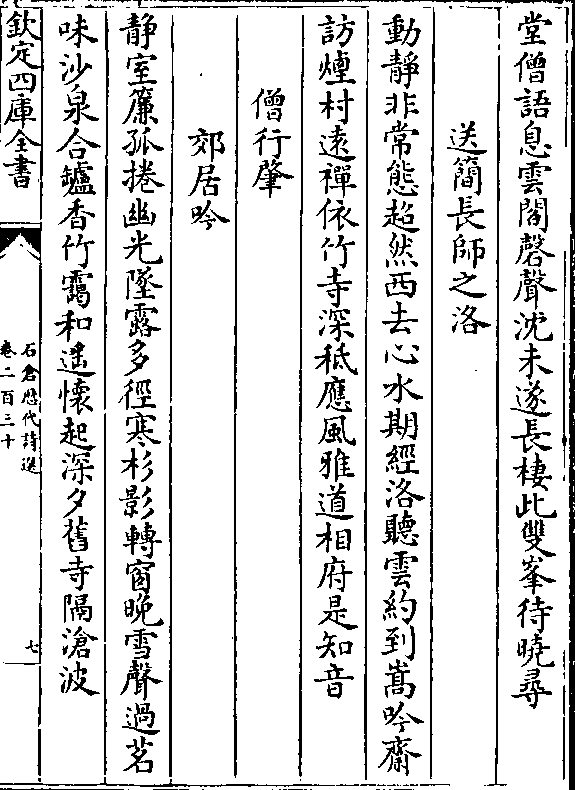 堂僧語息雲閣磬聲沈未遂長棲此雙峯待曉尋
送簡長師之洛
動靜非常態超然西去心水期經洛聽雲約到嵩吟齋
訪煙村遠禪依竹寺深秖應風雅道相府是知音
僧行肇
郊居吟
靜室簾孤捲幽光墜露多徑寒杉影轉窗晚雪聲過茗
味沙泉合鑪香竹靄和遙懷起深夕舊寺隔滄波
欽定四庫全書
石倉歷代詩選
卷二百三十
七